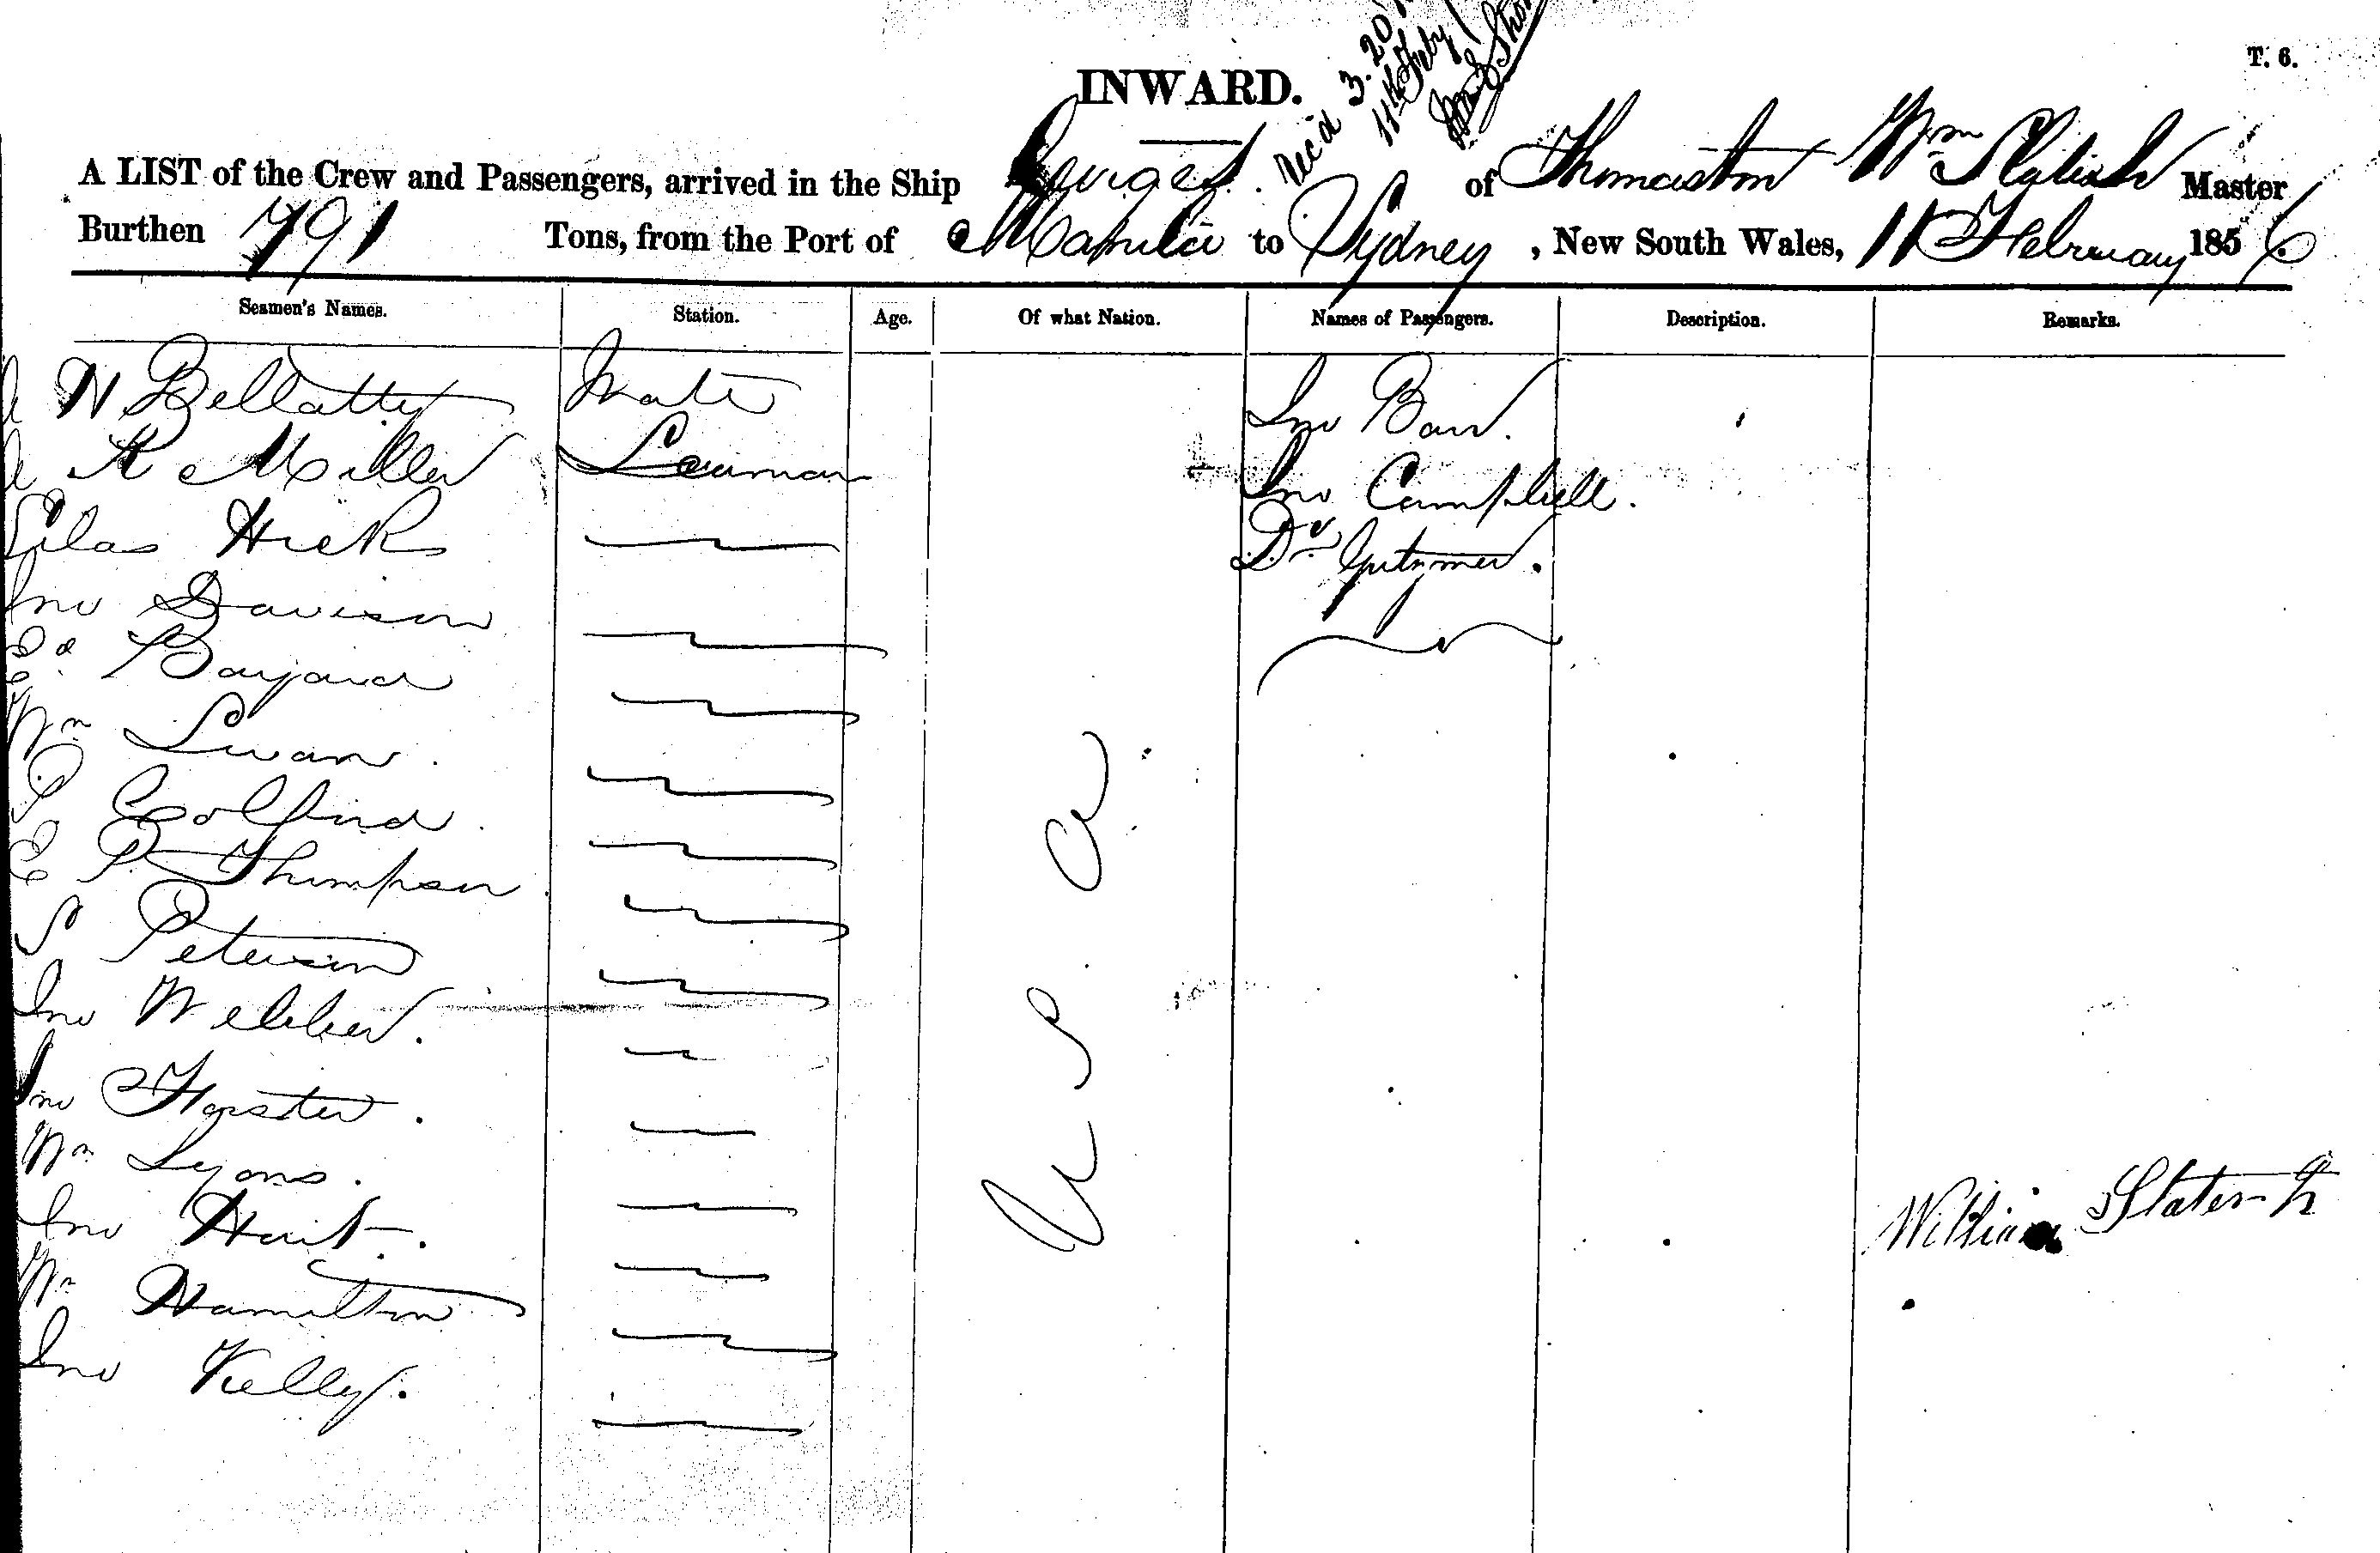 T. 6.
INWARD.
Rec'd 3.20
11th Feby
A LIST of the Crew and Passengers, arrived in the Ship of Thomaston Wm Master
Burthen 791 Tons, from the Port of Manila to Sydney, New South Wales, 11 February 1856
Seamen's Names. Station. Age. Of what Nation. Names of Passengers. Description. Remarks.
N Bellatty Mate Jno Barr.
R Miller Seaman Jno Campbell.
Silas Hicks Dr
Jno Davison
Ed Bayard
Wm Swan.
P
E P Thompson
S Peterson
Jno Webber.
Jno Forster.
Wm Lyons.
Jno Hunt.
Wm Hamilton
Jno Kelly.
U S A
William